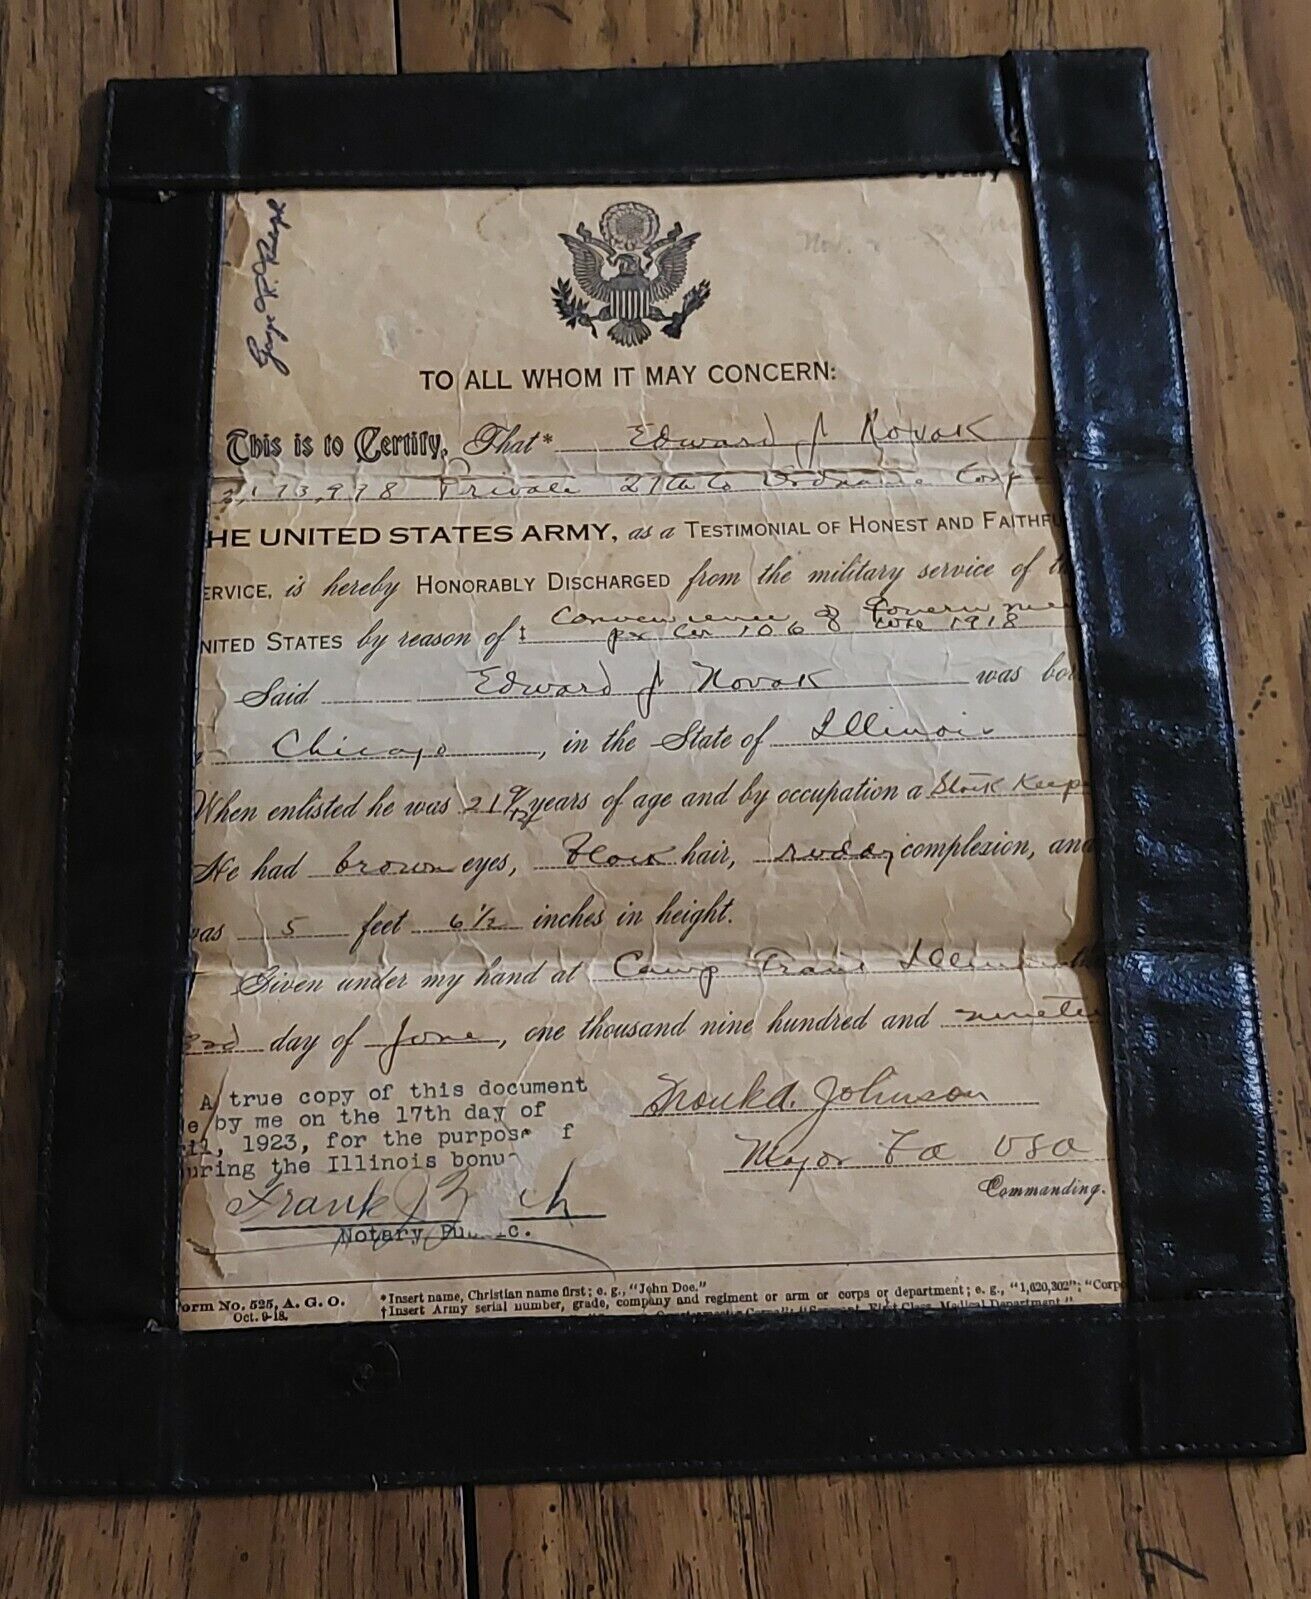 TO ALL WHOM IT MAY CONCERN:
This is to Certify, That* Edward J Novak
2,173,978 Private 27th Co Ordnance Corp
HE UNITED STATES ARMY, as a TESTIMONIAL OF HONEST AND FAITHFU
ERVICE, is hereby HONORABLY DISCHARGED from the military service of th
NITED STATES by reason of ‡ Convenience of Governmen
per Cir 106 1918
Said Edward J Novak was bor
Chicago, in the State of Illinois
When enlisted he was 21 9/12 years of age and by occupation a Stock Keep
He had brown eyes, black hair, ruddy complexion, and
was 5 feet 6 1/2 inches in height.
Given under my hand at Camp Grant Illinois
day of June, one thousand nine hundred and ninetee
A true copy of this document
e by me on the 17th day of
il, 1923, for the purpose f
uring the Illinois bonu
Frank J
Notary Public.
Frank A. Johnson
Major FA USA
Commanding.
orm No. 525, A. G. O.
Oct. 9-18.
*Insert name, Christian name first; e. g., "John Doe."
†Insert Army serial number, grade, company and regiment or arm or corps or department; e. g., "1,620,302"; "Corpo